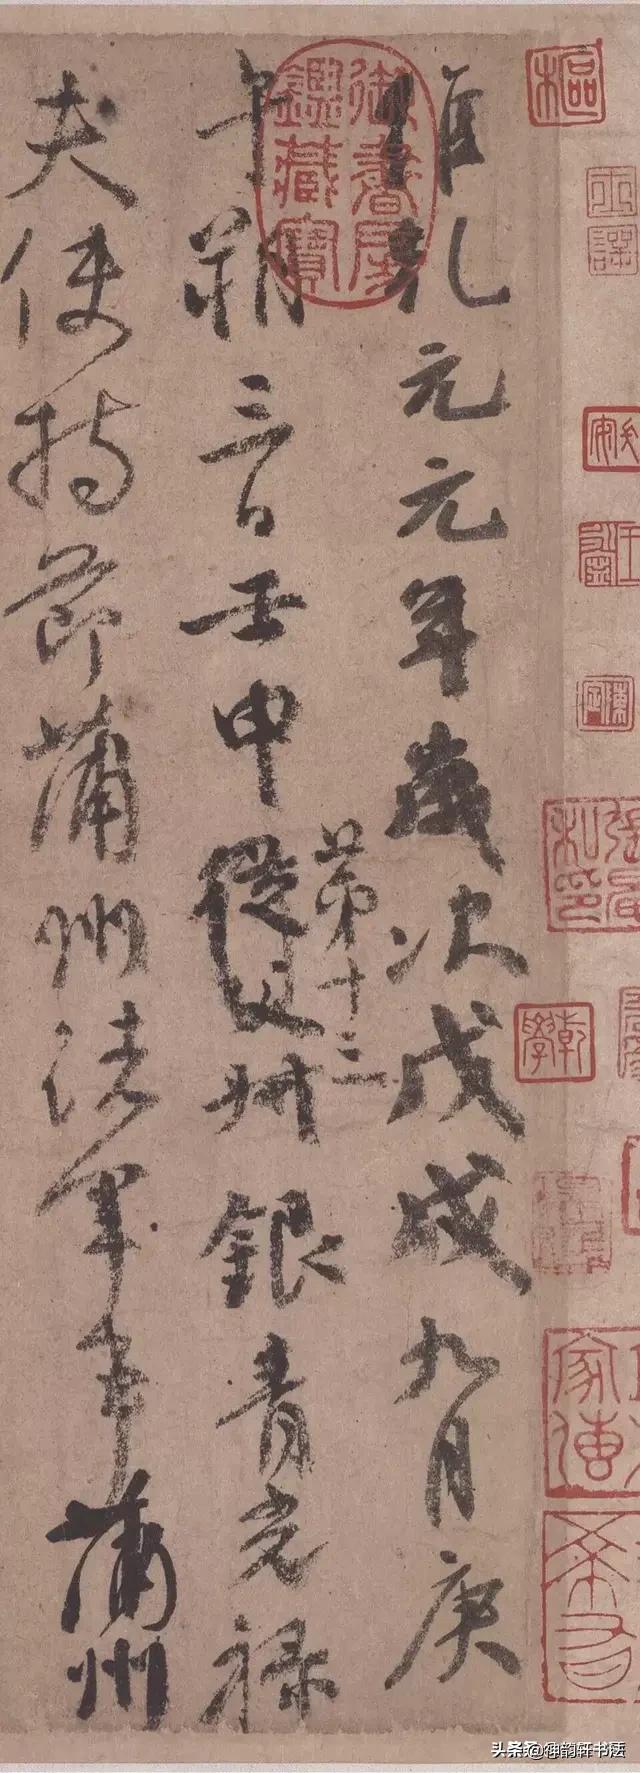 維乾元元年歲次戊戌九月庚
午朔三日壬申從父叔銀青光祿
第十三
夫使持節蒲州諸軍事蒲州
御書房鑑藏寶
樞
乾學
头条 @神韵轩书法